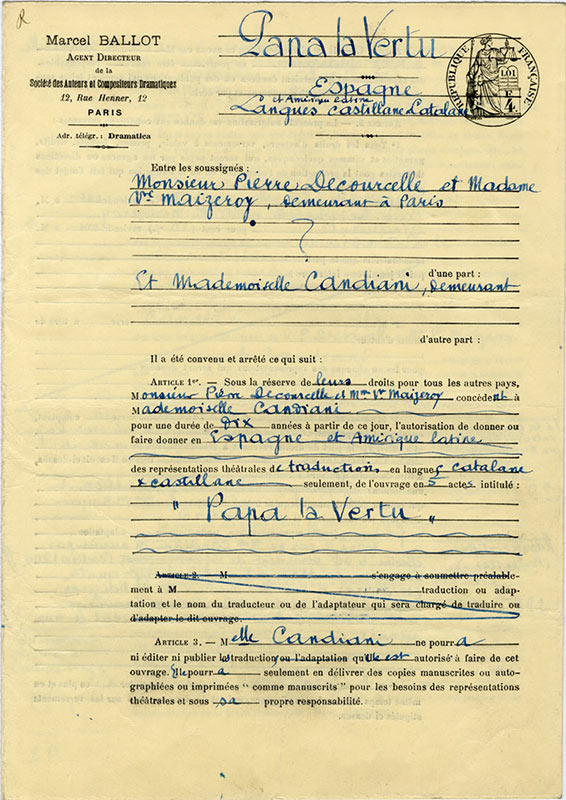 R
Marcel BALLOT
AGENT DIRECTEUR
de la
Société des Auteurs et Compositeurs Dramatiques
12, Rue Henner, 12
PARIS
Adr. télégr. : Dramatica
Papa la Vertu
Espagne
et Amérique latine
Langues Castillane Catalane
RÉPUBLIQUE FRANÇAISE
LOI
F.
4
Entre les soussignés :
Monsieur Pierre Decourcelle et Madame
Vve Maizeroy, demeurant à Paris
?
d'une part :
Et Mademoiselle Candiani, demeurant
d'autre part :
Il a été convenu et arrêté ce qui suit :
ARTICLE 1er. — Sous la réserve de leurs droits pour tous les autres pays,
Monsieur Pierre Decourcelle et Mme Vve Maizeroy concèdent à
Mademoiselle Candiani
pour une durée de dix années à partir de ce jour, l'autorisation de donner ou
faire donner en Espagne et Amérique latine
des représentations théâtrales de traductions en langues catalane
x castillane seulement, de l'ouvrage en 5 actes intitulé :
" Papa la Vertu "
ARTICLE 2. — M s'engage à soumettre préalable-
ment à M traduction ou adap-
tation et le nom du traducteur ou de l'adaptateur qui sera chargé de traduire ou
d'adapter le dit ouvrage.
ARTICLE 3. — Melle Candiani ne pourra
ni éditer ni publier la traduction ou l'adaptation qu'elle est autorisé à faire de cet
ouvrage. Elle pourra seulement en délivrer des copies manuscrites ou auto-
graphiées ou imprimées "comme manuscrits" pour les besoins des représentations
théâtrales et sous sa propre responsabilité.